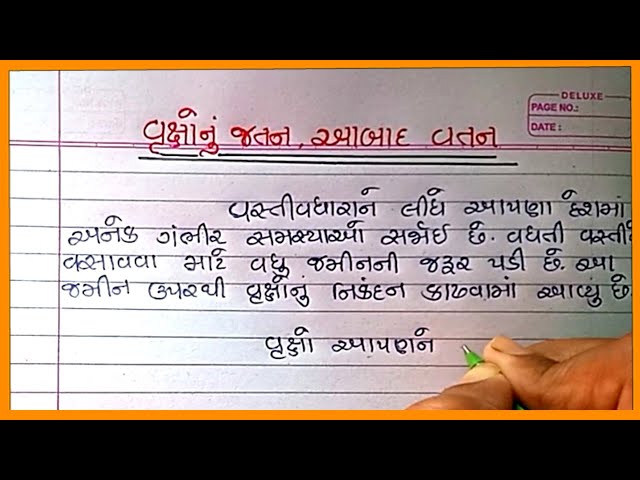 DELUXE
PAGE NO.:
DATE:
વૃક્ષોનું જતન, આબાદ વતન
વસ્તીવધારાને લીધે આપણા દેશમાં
અનેક ગંભીર સમસ્યાઓ સર્જાઈ છે. વધતી વસ્તીને
વસાવવા માટે વધુ જમીનની જરૂર પડી છે. આ
જમીન ઉપરથી વૃક્ષોનું નિકંદન કાઢવામાં આવ્યું છે.
વૃક્ષો આપણને